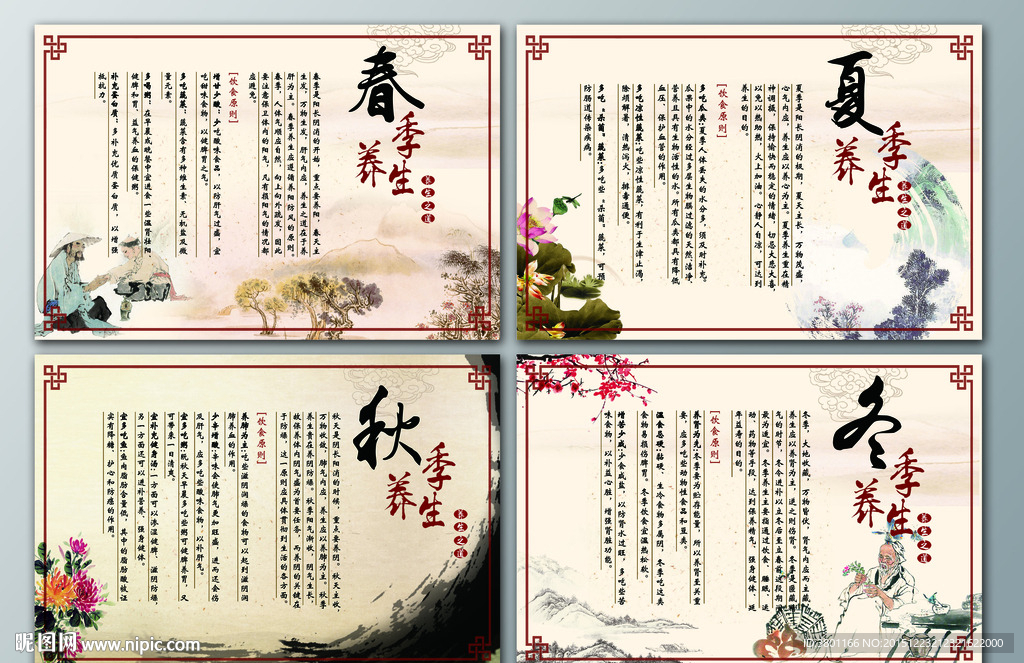 春
季
养
生
养生之道
春季是阳长阴消的开始，重点要养阳，春天主
生发，万物生发，肝气内应，养生之道在于养
肝为主。春季养生应遵循养阳防风的原则。
春季，人体气顺应自然，向上向外疏发，因此
要注意保卫体内的阳气，凡有损阳气的情况都
应避免。
[饮食原则]
增甘少酸：少吃酸味食品，以防肝气过盛，宜
吃甜味食物，以健脾胃之气。
多吃蔬菜：蔬菜含有多种维生素、无机盐及微
量元素。
多喝粥：在早晨或晚餐中宜进食一些温肾壮阳、
健脾和胃、益气养血的保健粥。
补充蛋白质：多补充优质蛋白质，以增强
抵抗力。
夏
季
养
生
养生之道
夏季是阳长阴消的极期，夏天主长，万物茂盛，
心气内应，养生应以养心为主。夏季养生重在精
神调摄，保持愉快而稳定的情绪，切忌大悲大喜，
以免以热助热，火上加油。心静人自凉，可达到
养生的目的。
[饮食原则]
多吃瓜类：夏季人体丢失的水分多，须及时补充。
瓜果中的水分经过多层生物膜过滤的天然、洁净、
营养且具有生物活性的水。所有瓜类都具有降低
血压、保护血管的作用。
多吃凉性蔬菜：吃些凉性蔬菜，有利于生津止渴，
除烦解暑，清热泻火，排毒通便。
多吃“杀菌”蔬菜：多吃些“杀菌”蔬菜，可预
防肠道传染疾病。
秋
季
养
生
养生之道
秋天是阴长阳消的时候，重点要养阴。秋天主收，
万物收敛，肺气内应，养生应以养肺为主。秋季
养生贵在养阴防燥。秋季阳气渐收，阴气生长，
故保养体内阴气盛为首要任务，而养阴的关键在
于防燥，这一原则应具体贯彻到生活的各方面。
[饮食原则]
养肺为主：吃些滋阴润燥的食物可以起到滋阴润
肺养血的作用。
少辛增酸：辛味会使肺气更加旺盛，进而还会伤
及肝气，应多吃些酸味食物，以补肝气。
宜多吃粥：秋天早晨多吃些粥可健脾养胃，又
可带来一日清爽。
宜补充健身汤：一方面可以渗湿健脾、滋阴防燥，
另一方面还可以进补营养、强身健体。
宜多吃鱼：鱼肉脂肪含量低，其中的脂肪酸被证
实有降糖、护心和防癌的作用。
冬
季
养
生
养生之道
冬季，大地收藏，万物皆伏，肾气内应而主藏，
养生应以养肾为主，逆之则伤肾。冬季是匿藏精
气的时节，冬令进补以立冬后至立春前这段期间
最为适宜。冬季养生主要指通过饮食、睡眠、运
动、药物等手段，达到保养精气、强身健体、延
年益寿的目的。
[饮食原则]
养肾为先：冬季要为贮存能量，所以养肾至关重
要，应多吃些动物性食品和豆类。
温食忌硬：黏硬、生冷食物多属阴，冬季吃这类
食物易损伤脾胃。冬季饮食宜温热松软。
增苦少咸：少食咸盐，以防肾水过旺，多吃些苦
味食物，以补益心脏，增强肾脏功能。
昵图网 www.nipic.com